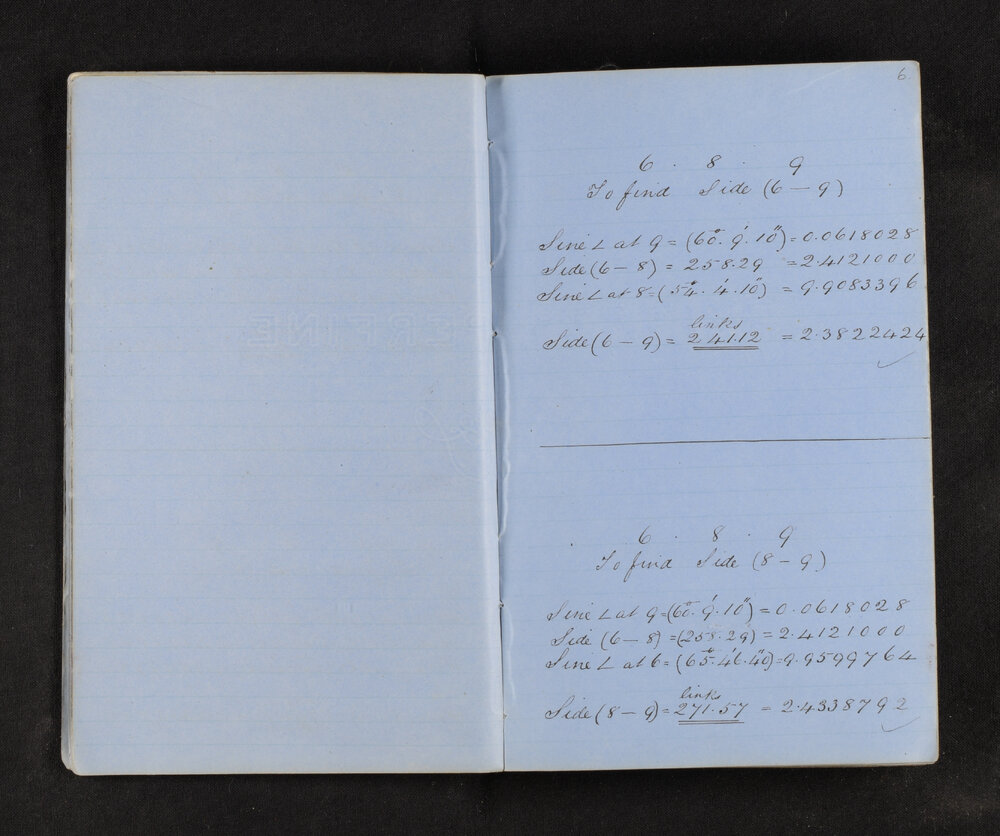 6
6 . 8 . 9
To find Side (6 — 9)
Sine ∠ at 9 = (60°. 9'. 10") = 0.0618028
Side (6 — 8) = 258.29 = 2.4121000
Sine ∠ at 8 = (54°. 4'. 10") = 9.9083396
links
Side (6 — 9) = 241.12 = 2.3822424
6 . 8 . 9
To find Side (8 — 9)
Sine ∠ at 9 = (60°. 9'. 10") = 0.0618028
Side (6 — 8) = (258.29) = 2.4121000
Sine ∠ at 6 = (65°. 46'. 40") = 9.9599764
links
Side (8 — 9) = 271.57 = 2.4338792